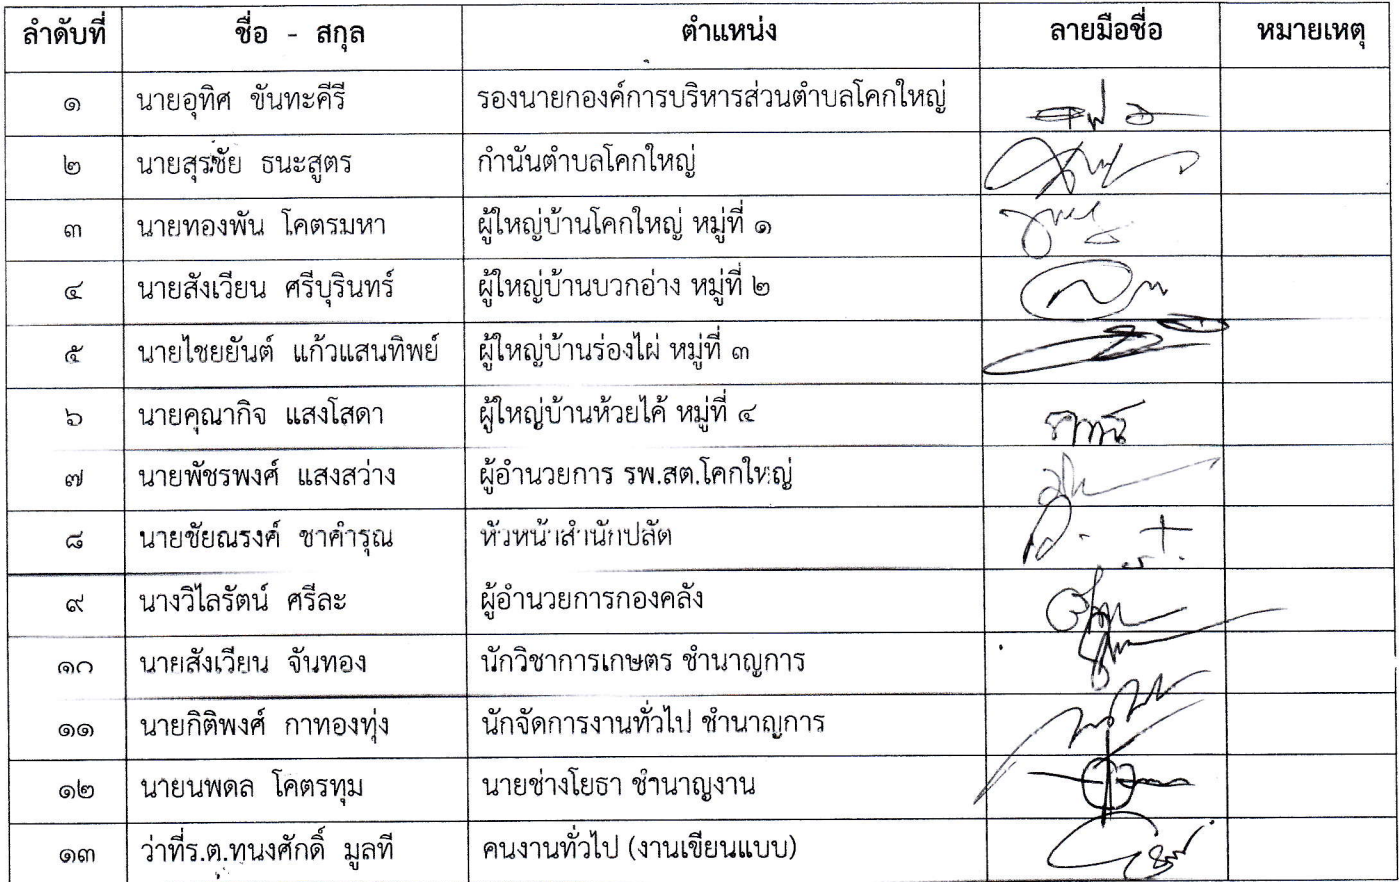 ลำดับที่ ชื่อ - สกุล ตำแหน่ง ลายมือชื่อ หมายเหตุ
๑ นายอุทิศ ขันทะคีรี รองนายกองค์การบริหารส่วนตำบลโคกใหญ่
๒ นายสุรชัย ธนะสูตร กำนันตำบลโคกใหญ่
๓ นายทองพัน โคตรมหา ผู้ใหญ่บ้านโคกใหญ่ หมู่ที่ ๑
๔ นายสังเวียน ศรีบุรินทร์ ผู้ใหญ่บ้านบวกอ่าง หมู่ที่ ๒
๕ นายไชยยันต์ แก้วแสนทิพย์ ผู้ใหญ่บ้านร่องไผ่ หมู่ที่ ๓
๖ นายคุณากิจ แสงโสดา ผู้ใหญ่บ้านห้วยไค้ หมู่ที่ ๔
๗ นายพัชรพงศ์ แสงสว่าง ผู้อำนวยการ รพ.สต.โคกใหญ่
๘ นายชัยณรงค์ ชาคำรุณ หัวหน้าสำนักปลัด
๙ นางวิไลรัตน์ ศรีละ ผู้อำนวยการกองคลัง
๑๐ นายสังเวียน จันทอง นักวิชาการเกษตร ชำนาญการ
๑๑ นายกิติพงศ์ กาทองทุ่ง นักจัดการงานทั่วไป ชำนาญการ
๑๒ นายนพดล โคตรทุม นายช่างโยธา ชำนาญงาน
๑๓ ว่าที่ร.ต.ทนงศักดิ์ มูลที คนงานทั่วไป (งานเขียนแบบ)